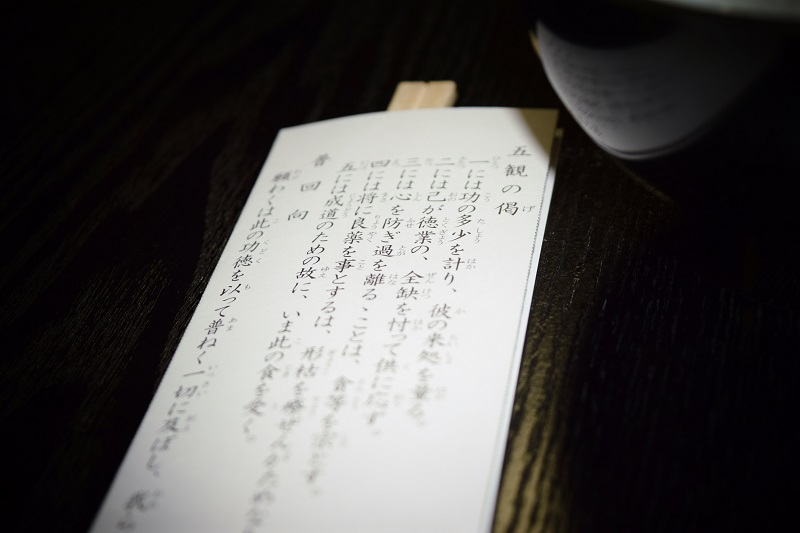 五観の偈
一には功の多少を計り、彼の来処を量る。
二には己が徳業の、全缺を忖って供に応ず。
三には心を防ぎ過を離るゝことは、食等を宗とす。
四には将に良薬を事とするは、形枯を療ぜん
五には成道のための故に、いま此の食を受く。
普回向
願わくは此の功徳を以って普ねく一切に及ぼし、我